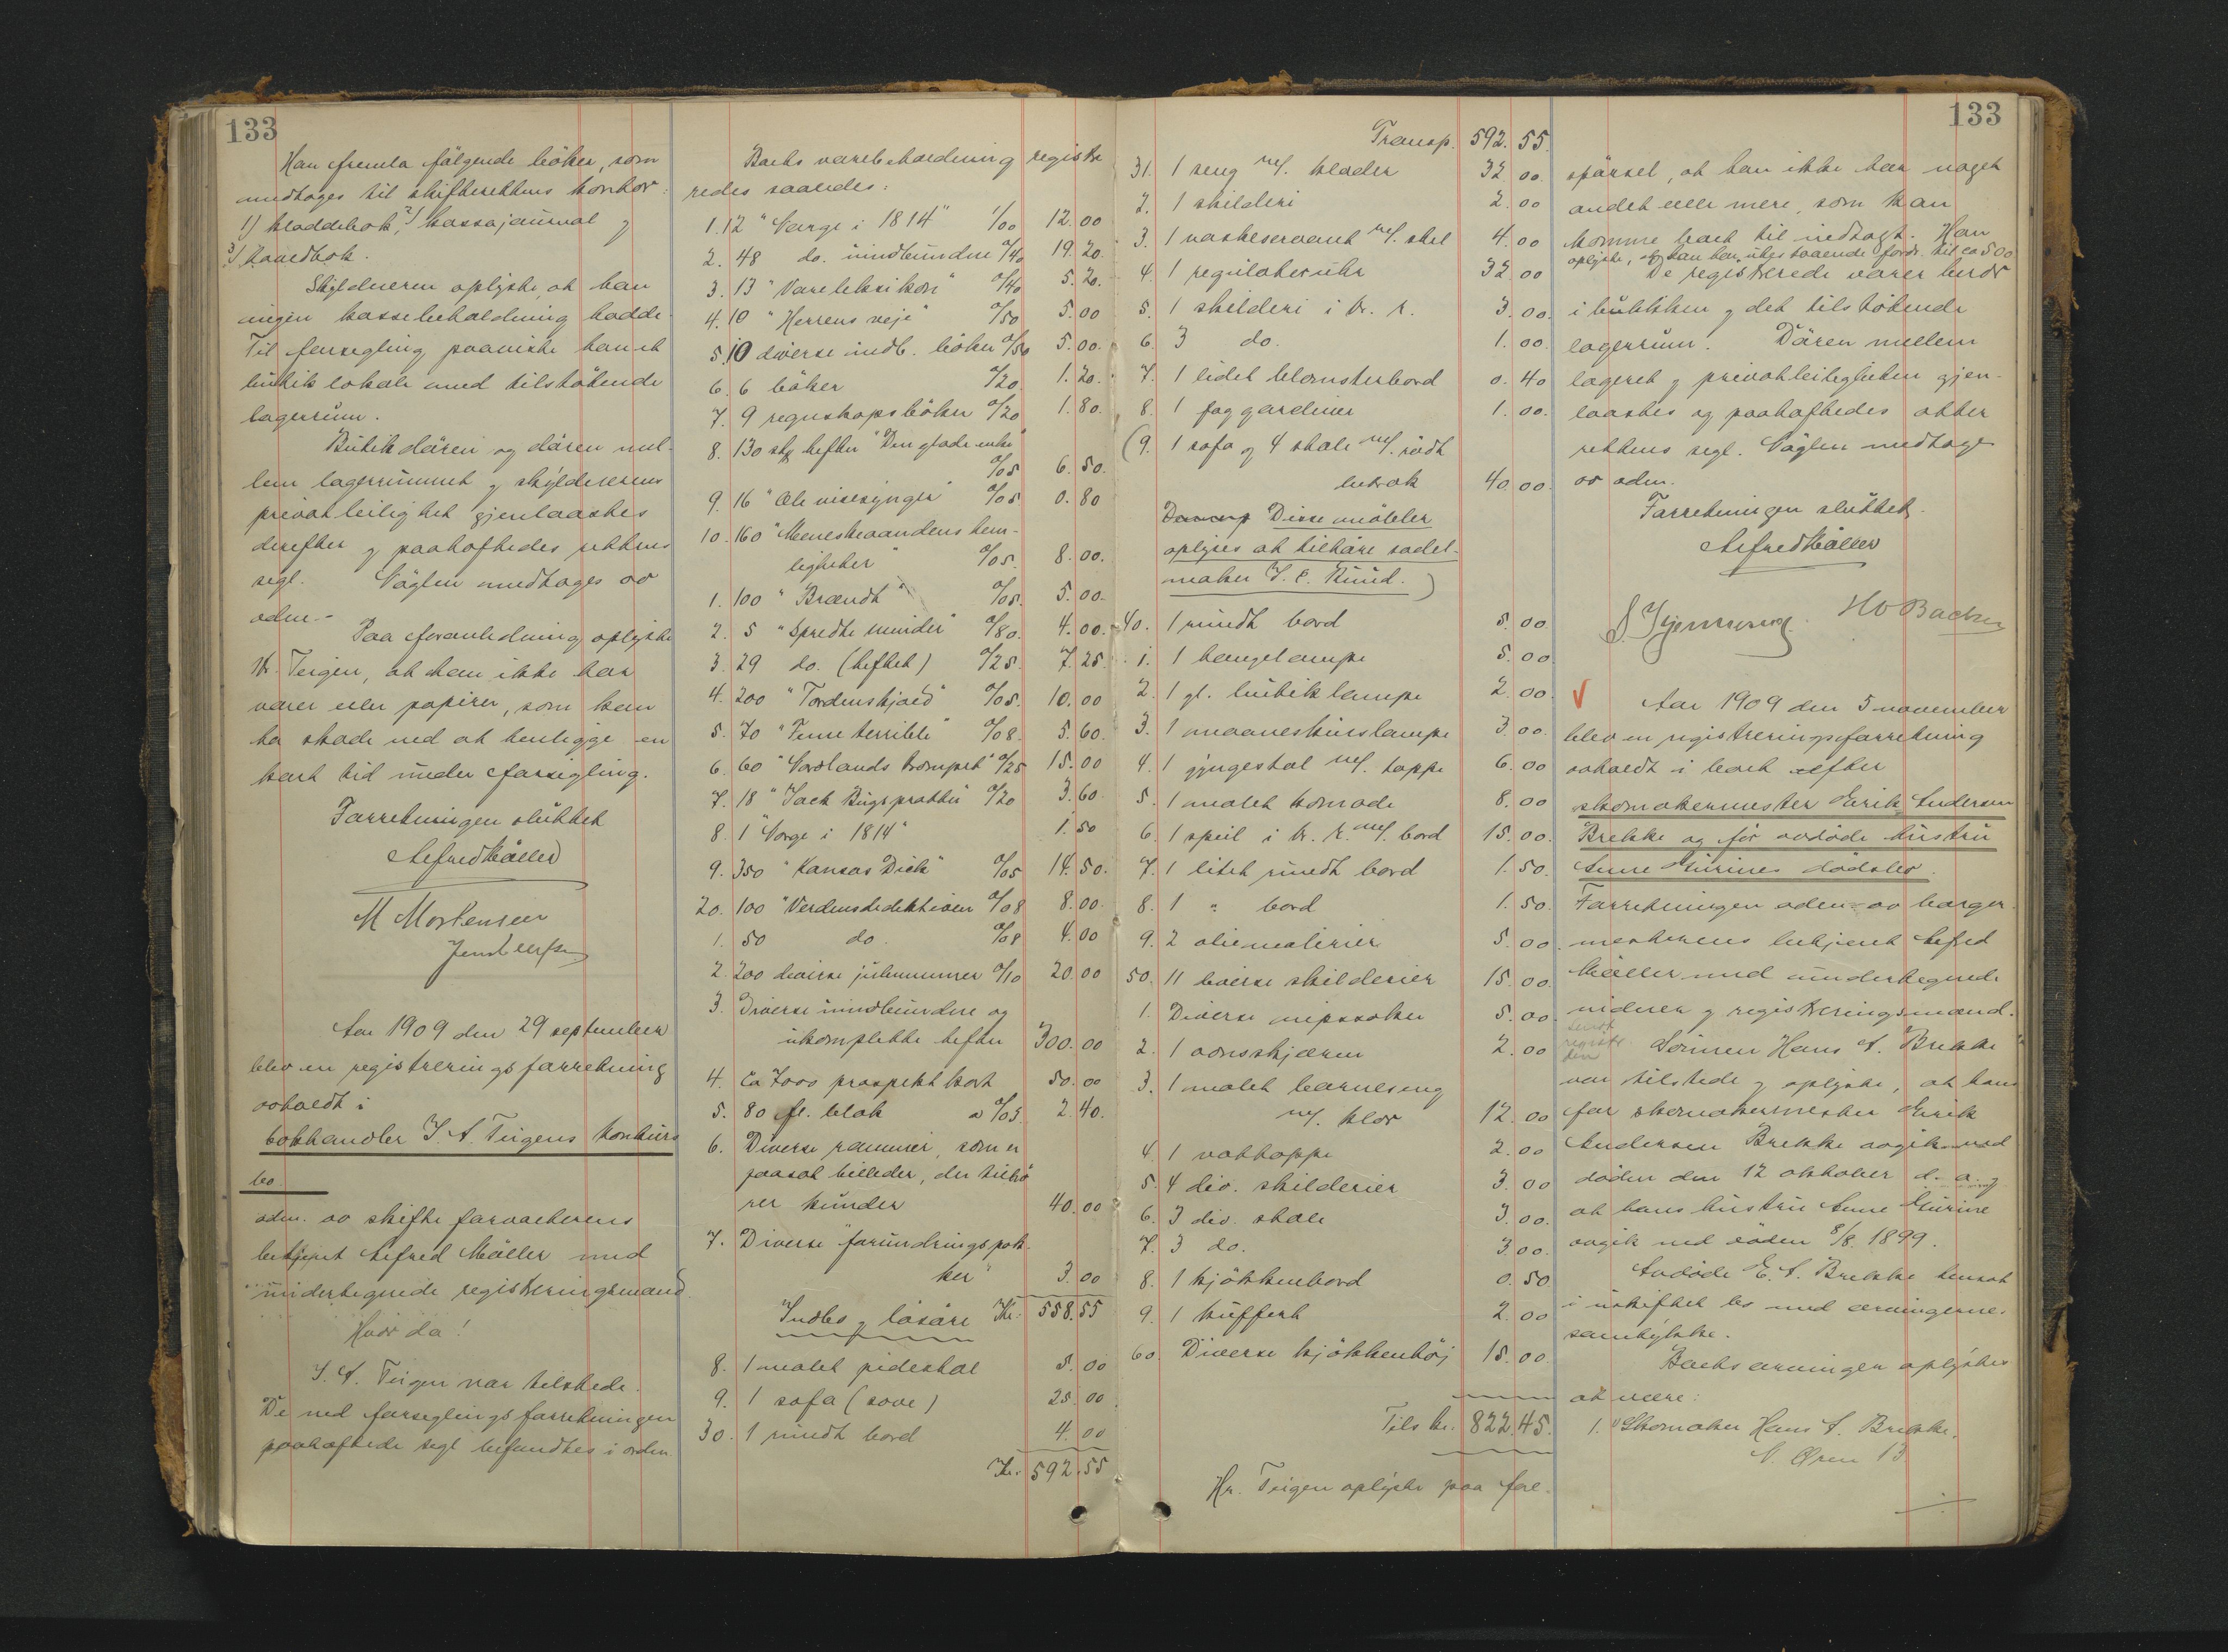 133
Han fremla følgende böker, som
medtages til skifterettens kontor:
1) kladdebok, 2) kassajournal og
3) hovedbok.
Skyldneren oplyste, at han
ingen kassebeholdning hadde.
Til forsegling paaviste han et
butik lokale med tilstötende
lagerrum.
Butikdören og dören mel-
lem lagerrummet og skyldnerens
privatleilighet gjenlaastes
derefter og paahæftedes rettens
segl. Nöglen medtages av
adm.
Paa foranledning oplyste
Hr. Teigen, at han ikke har
varer eller papirer, som kan
ta skade ved at henligge en
kort tid under forsegling.
Forretningen sluttet
Alfred Møller
M Mortensen
Aar 1909 den 29 september
blev en registreringsforretning
avholdt i
bokhandler J. A. Teigens konkurs
bo
adm. av skifteforvalterens
betjent Alfred Møller med
undertegnede registreringsmænd
Hvor da!
J. A. Teigen var tilstede.
De ved forseglingsforretningen
paahæftede segl befandtes i orden.
Boets varebeholdning registre
redes saaledes:
1. 12 "Norge i 1814" 1/00 12.00
2. 48 do. uindbundne a/40 19.20
3. 13 "Vareleksikon" a/40 5.20
4. 10 "Herrens veje" a/50 5.00
5. 10 diverse indb. böker a/50 5.00
6. 6 böker a/20 1.20
7. 9 regnskapsböker a/20 1.80
8. 130 stk hefter "Den glade enke"
a/05 6.50
9. 16 "Ole visesynger" a/05 0.80
10. 160 "Menneskeaandens hem-
ligheter" a/05 8.00
1. 100 "Brændt" a/05 5.00
2. 5 "Spredte minder" a/80 4.00
3. 29 do. (heftet) a/25 7.25
4. 200 "Tordenskjold" a/05 10.00
5. 70 "Femme terrible" a/08 5.60
6. 60 "Nordlands trompet" a/25 15.00
7. 18 "Jack Bugspratten" a/20 3.60
8. 1 "Norge i 1814" 1.50
9. 350 "Kansas Dick" a/05 14.50
20. 100 "Verdensdedektiven a/08 8.00
1. 50 do. a/08 4.00
2. 200 diverse julenummer a/10 20.00
3. Diverse uindbundne og
ukomplette hefter 300.00
4. Ca 7000 prospektkort 50.00
5. 80 fl. blæk a a/03 2.40
6. Diverse rammer, som er
paasat billeder, der tilhö
rer kunder 40.00
7. Diverse "forundringspak-
ker" 3.00
Indbo og lösöre Kr. 558.55
8. 1 malet pidestal 5.00
9. 1 sofa (sove) 25.00
30. 1 rundt bord 4.00
Kr. 592.55
133
Transp. 592.55
31. 1 seng m/. klæder 32.00
2. 1 skilderi 2.00
3. 1 vaskeservant m/. stel 4.00
4. 1 regulateruhr 32.00
5. 1 skilderi i br. r. 3.00
6. 3 do. 1.00
7. 1 lidet blomsterbord 0.40
8. 1 fag gardiner 1.00
(9. 1 sofa og 4 stole m/. rödt
betræk 40.00
Disse möbler
oplyses at tilhøre sadel-
maker J. E. Ruud.)
40. 1 rundt bord 5.00
1. 1 hængelampe 5.00
2. 1 gl. butiklampe 2.00
3. 1 maaneskinslampe 3.00
4. 1 gyngestol m/. tæppe 6.00
5. 1 malet komode 8.00
6. 1 speil i br. r. m/. bord 15.00
7. 1 litet rundt bord 1.50
8. 1 " bord 1.50
9. 2 oliemalerier 5.00
50. 11 diverse skilderier 15.00
1. Diverse nipssaker 5.00
2. 1 ovnsskjærm 2.00
3. 1 malet barneseng
m/. klær 12.00
4. 1 vattæppe 2.00
5. 4 div. skilderier 3.00
6. 3 div. stole 3.00
7. 3 do. 3.00
8. 1 kjökkenbord 0.50
9. 1 kuffert 2.00
60. Diverse kjökkentöj 15.00
Tils kr. 822.45
Hr. Teigen oplyste paa fore-
spörsel, at han ikke har noget
andet eller mere, som kan
komme boet til indtægt. Han
oplyste, at han har utestaaende fordr. til ca 500
De registrerede varer beror
i butikken og det tilstötende
lagerrum. Dören mellem
lageret og privatleiligheten gjen-
laastes og paahæftedes atter
rettens segl. Nöglen medtoges
av adm.
Forretningen sluttet.
Alfred Møller
Aar 1909 den 5 november
blev en registreringsforretning
avholdt i boet efter
skomakermester Eirik Andersen
Brekke og før avdöde hustru
Anne Gurines dödsbo.
Forretningen adm. av borger-
mesterens betjent Alfred
Møller med undertegnede
vidner og registreringsmænd.
Sönnen Hans A. Brekke
var tilstede og oplyste, at hans
far skomakermester Eirik
Andersen Brekke avgik ved
döden den 12 oktober d. a. og
at hans hustru Anne Gurine
avgik ved döden 8/8 1899.
Avdöde E. A. Brekke hensat
i uskiftet bo med arvingernes
samtykke.
Boets arvinger oplystes
at være:
1. Skomaker Hans A. Brekke,
N. Øren 13